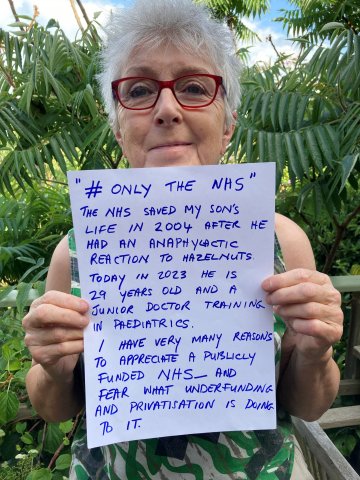 "# ONLY THE NHS"
THE NHS SAVED MY SON'S
LIFE IN 2004 AFTER HE
HAD AN ANAPHYLACTIC
REACTION TO HAZELNUTS.
TODAY IN 2023 HE IS
29 YEARS OLD AND A
JUNIOR DOCTOR TRAINING
IN PAEDIATRICS.
I HAVE VERY MANY REASONS
TO APPRECIATE A PUBLICLY
FUNDED NHS_ AND
FEAR WHAT UNDERFUNDING
AND PRIVATISATION IS DOING
TO IT.